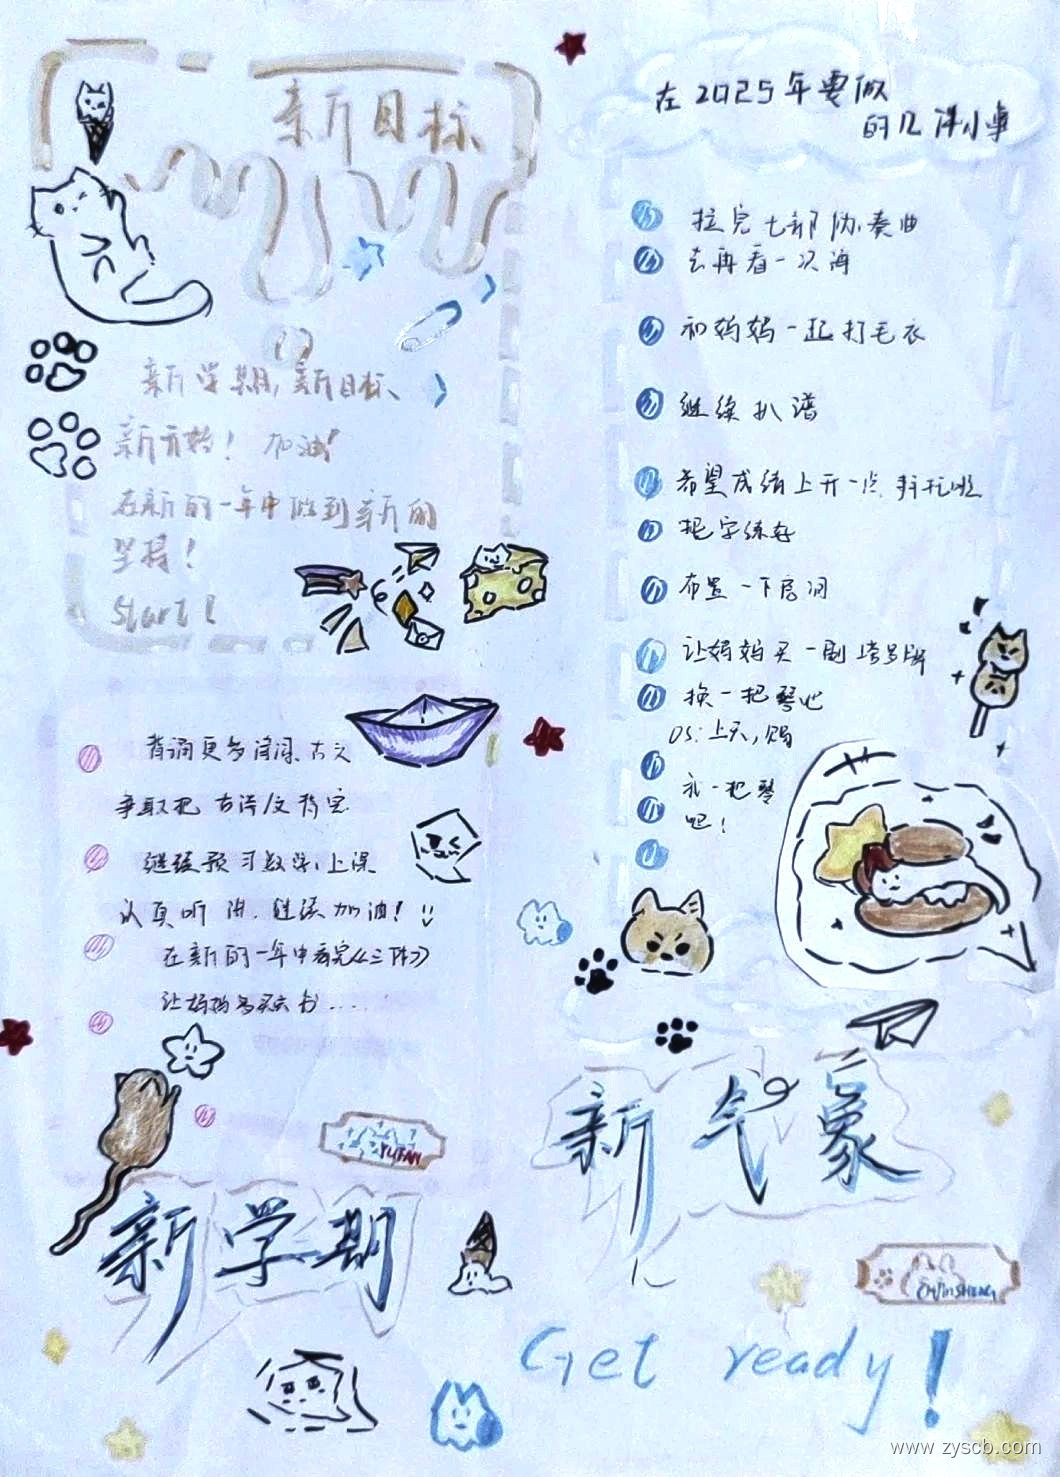 新目标
新学期，新目标、
新开始！加油！
在新的一年中做到新的
坚持！
Start！
背诵更多诗词、古文
争取把古诗/文背完
继续预习数学，上课
认真听讲，继续加油！
在新的一年中看完《三体》
让妈妈多买点书....
YUFAN
新学期
在2025年要做
的几件小事
拉完七部协奏曲
去再看一次海
和妈妈一起打毛衣
继续扒谱
希望成绩上升一点
把字练好
布置一下房间
让妈妈买一副
换一把琴吧
OS：上天，赐
我一把琴
吧！
新气象
Get ready！
www.zyscb.com